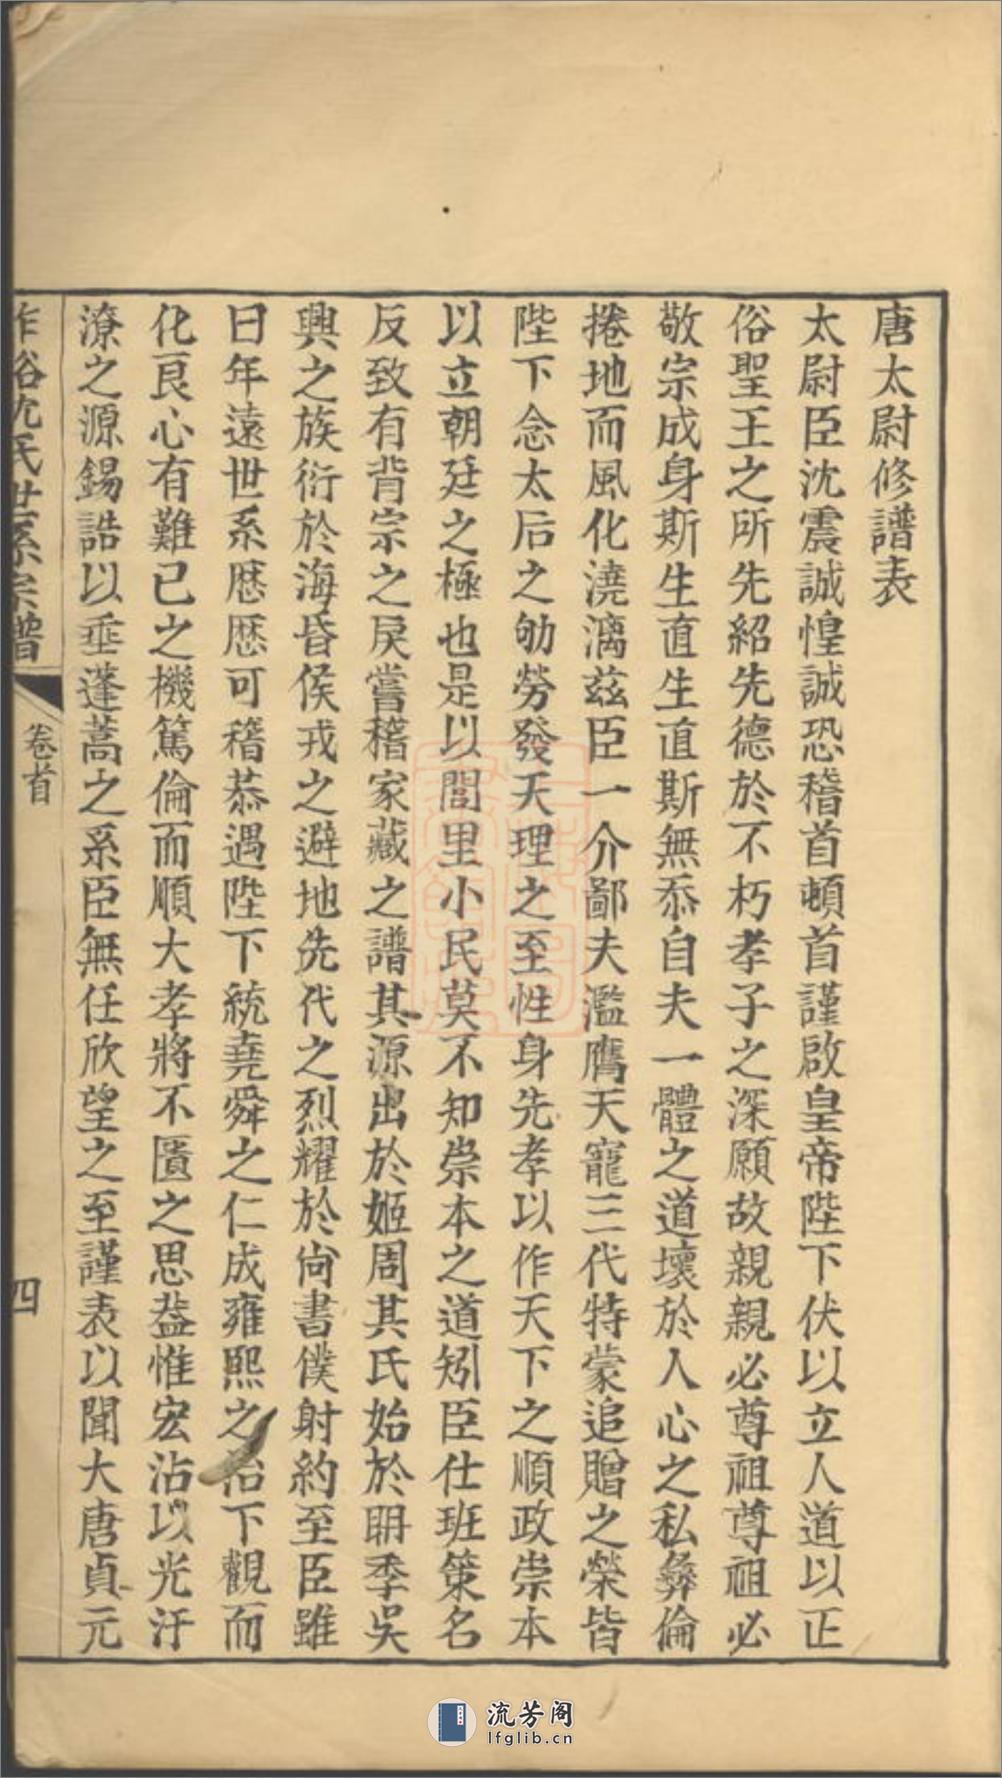 唐太尉修譜表
太尉臣沈震誠惶誠恐稽首頓首謹啟皇帝陛下伏以立人道以正
俗聖王之所先紹先德於不朽孝子之深願故親親必尊祖尊祖必
敬宗成身斯生直生直斯無忝自夫一體之道壞於人心之私彝倫
捲地而風化澆漓茲臣一介鄙夫濫膺天寵三代特蒙追贈之榮皆
陛下念太后之劬勞發天理之至性身先孝以作天下之順政崇本
以立朝廷之極也是以閭里小民莫不知崇本之道矧臣仕班策名
反致有背宗之戾嘗稽家藏之譜其源出於姬周其氏始於聃季吳
興之族衍於海昏侯戎之避地先代之烈耀於尚書僕射約至臣雖
曰年遠世系歷歷可稽恭遇陛下統堯舜之仁成雍熙之治下觀而
化良心有難已之機篤倫而順大孝將不匱之思益惟宏沾以光汙
潦之源錫誥以垂蓬蒿之系臣無任欣望之至謹表以聞大唐貞元
沈氏世系宗譜
卷首
四
流芳阁
lfglib.cn